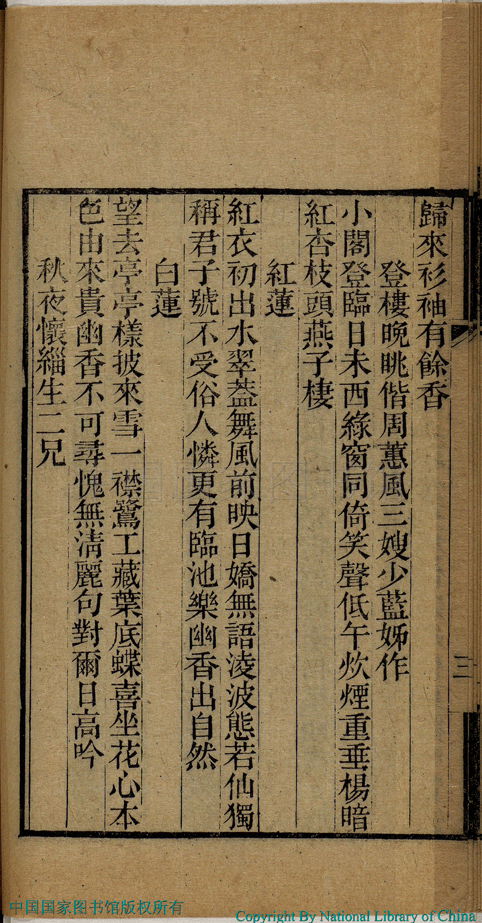 歸來衫袖有餘香
登樓晚眺偕周蕙風三嫂少藍姊作
小閣登臨日未西綠窗同倚笑聲低午炊煙重垂楊暗
紅杏枝頭燕子棲
紅蓮
紅衣初出水翠蓋舞風前映日嬌無語淩波態若仙獨
稱君子號不受俗人憐更有臨池樂幽香出自然
白蓮
望去亭亭樣披來雪一襟鷺工藏葉底蝶喜坐花心本
色由來貴幽香不可尋愧無淸麗句對爾日高吟
秋夜懷緇生二兄
三
中国国家图书馆版权所有
Copyright By National Library of China